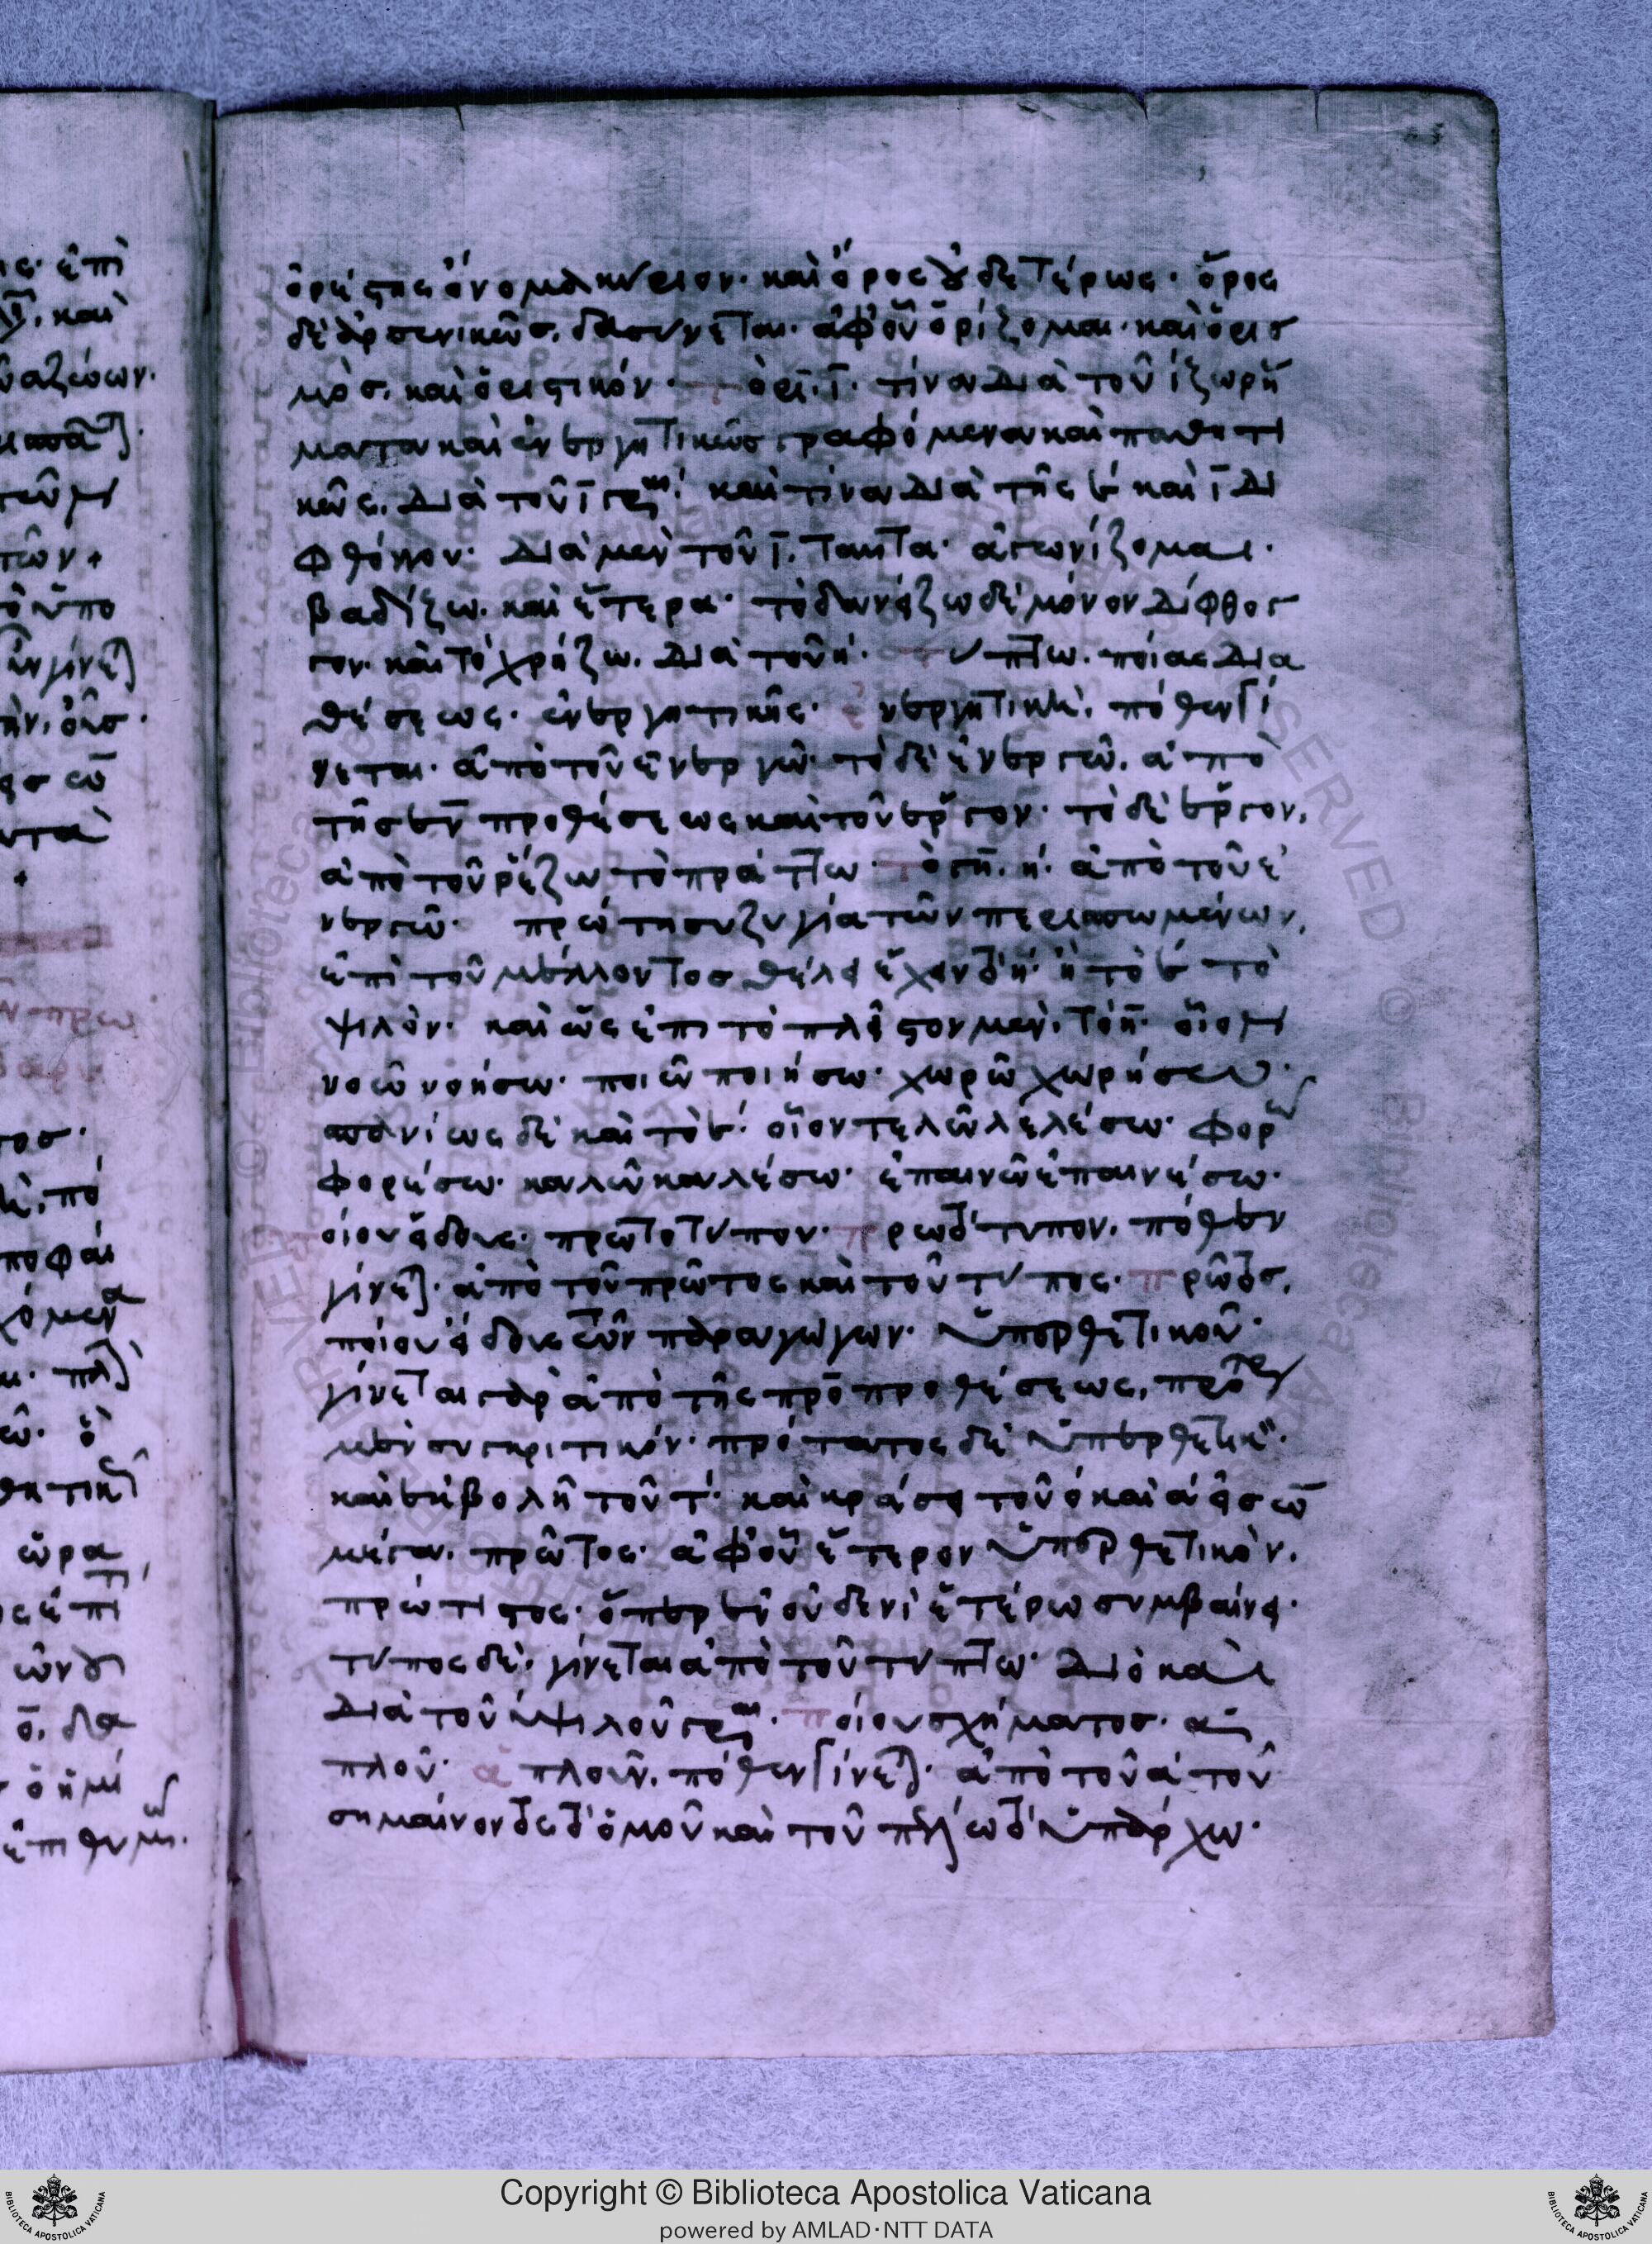 ὀρέστης ὄνομα κύριον· καὶ ὄρος οὐδετέρως· ὅρος
δὲ ἀρσενικῶς. δασύνεται· ἀφ' οὗ ὁρίζομαι· καὶ ὁρισ
μὸσ. καὶ ὁριστικόν· τὸ ρι. ῑ. τίνα διὰ τοῦ ίζω ρή
ματα καὶ ἐνεργητικῶς γραφόμενα καὶ παθητι
κῶς. διὰ τοῦ ῑ γρ· καὶ τίνα διὰ τῆς ει καὶ ῑ δι
φθόγγου· διὰ μὲν τοῦ ῑ. ταῦτα· ἀγωνίζομαι·
βαδίζω. καὶ ἕτερα· τὸ δανείζω δὲ μόνον δίφθογ
γον. καὶ τὸ χρήζω. διὰ τοῦ η· τύπτω. ποίας δια
θέσεως· ἐνεργητικῆς· ἐνεργητικὴ. πόθεν γί
νεται· ἀπὸ τοῦ ἐνεργῶ· τὸ δὲ ἐνεργῶ. ἀπὸ
τῆσ ἐν προθέσεως καὶ τοῦ ἔργον· τὸ δὲ ἔργον.
ἀπὸ τοῦ ῥέζω τὸ πράττω· τὸ γη. η. ἀπὸ τοῦ ἐ
νεργῶ· πρώτη συζυγία τῶν περισπωμένων,
ἐπὶ τοῦ μέλλοντοσ θέλει ἔχειν τὸ η· ἢ τὸ ε τὸ
ψιλόν· καὶ ὡς ἐπι τὸ πλεῖστον μὲν. τὸ η· οἷον
νοῶ νοήσω· ποιῶ ποιήσω· χωρῶ χωρήσω·
σπανίως δὲ καὶ τὸ ε· οἷον τελῶ τελέσω· φορῶ
φορέσω· καλῶ καλέσω· ἐπαινῶ ἐπαινέσω·
ποίου εἴδους· πρωτοτύπου· πρωτότυπον. πόθεν
γίνεται· ἀπὸ τοῦ πρῶτος καὶ τοῦ τύπος· πρῶτοσ.
ποίου εἴδους τῶν παραγώγων· ὑπερθετικοῦ·
γίνεται γὰρ ἀπὸ τῆς πρὸ προθέσεως, πρότερος
μὲν συγκριτικόν· πρότατος δὲ ὑπερθετικὸν·
καὶ ἐκβολῆ τοῦ τ· καὶ κράσει τοῦ ο καὶ α εἰσ ω
μέγα. πρῶτος· ἀφ' οὗ ἕτερον ὑπερθετικὸν.
πρώτιστος· ὅπερ ἐν οὐδενὶ ἑτέρω συμβαίνει·
τύπος δὲ. γίνεται ἀπὸ τοῦ τύπτω· διὸ καὶ
διὰ τοῦ υ ψιλοῦ γρ· ποίου σχήματοσ· ἁ
πλοῦ· ἁπλοῦν. πόθεν γίνεται· ἀπὸ τοῦ ἁ τοῦ
σημαίνοντος τὸ ὁμοῦ καὶ τοῦ πλέω τὸ ὑπάρχω·